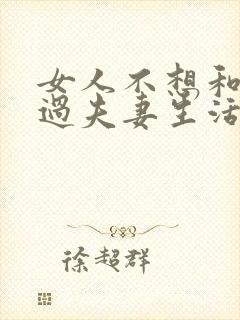 女人不想和
过夫妻生活
徐超群